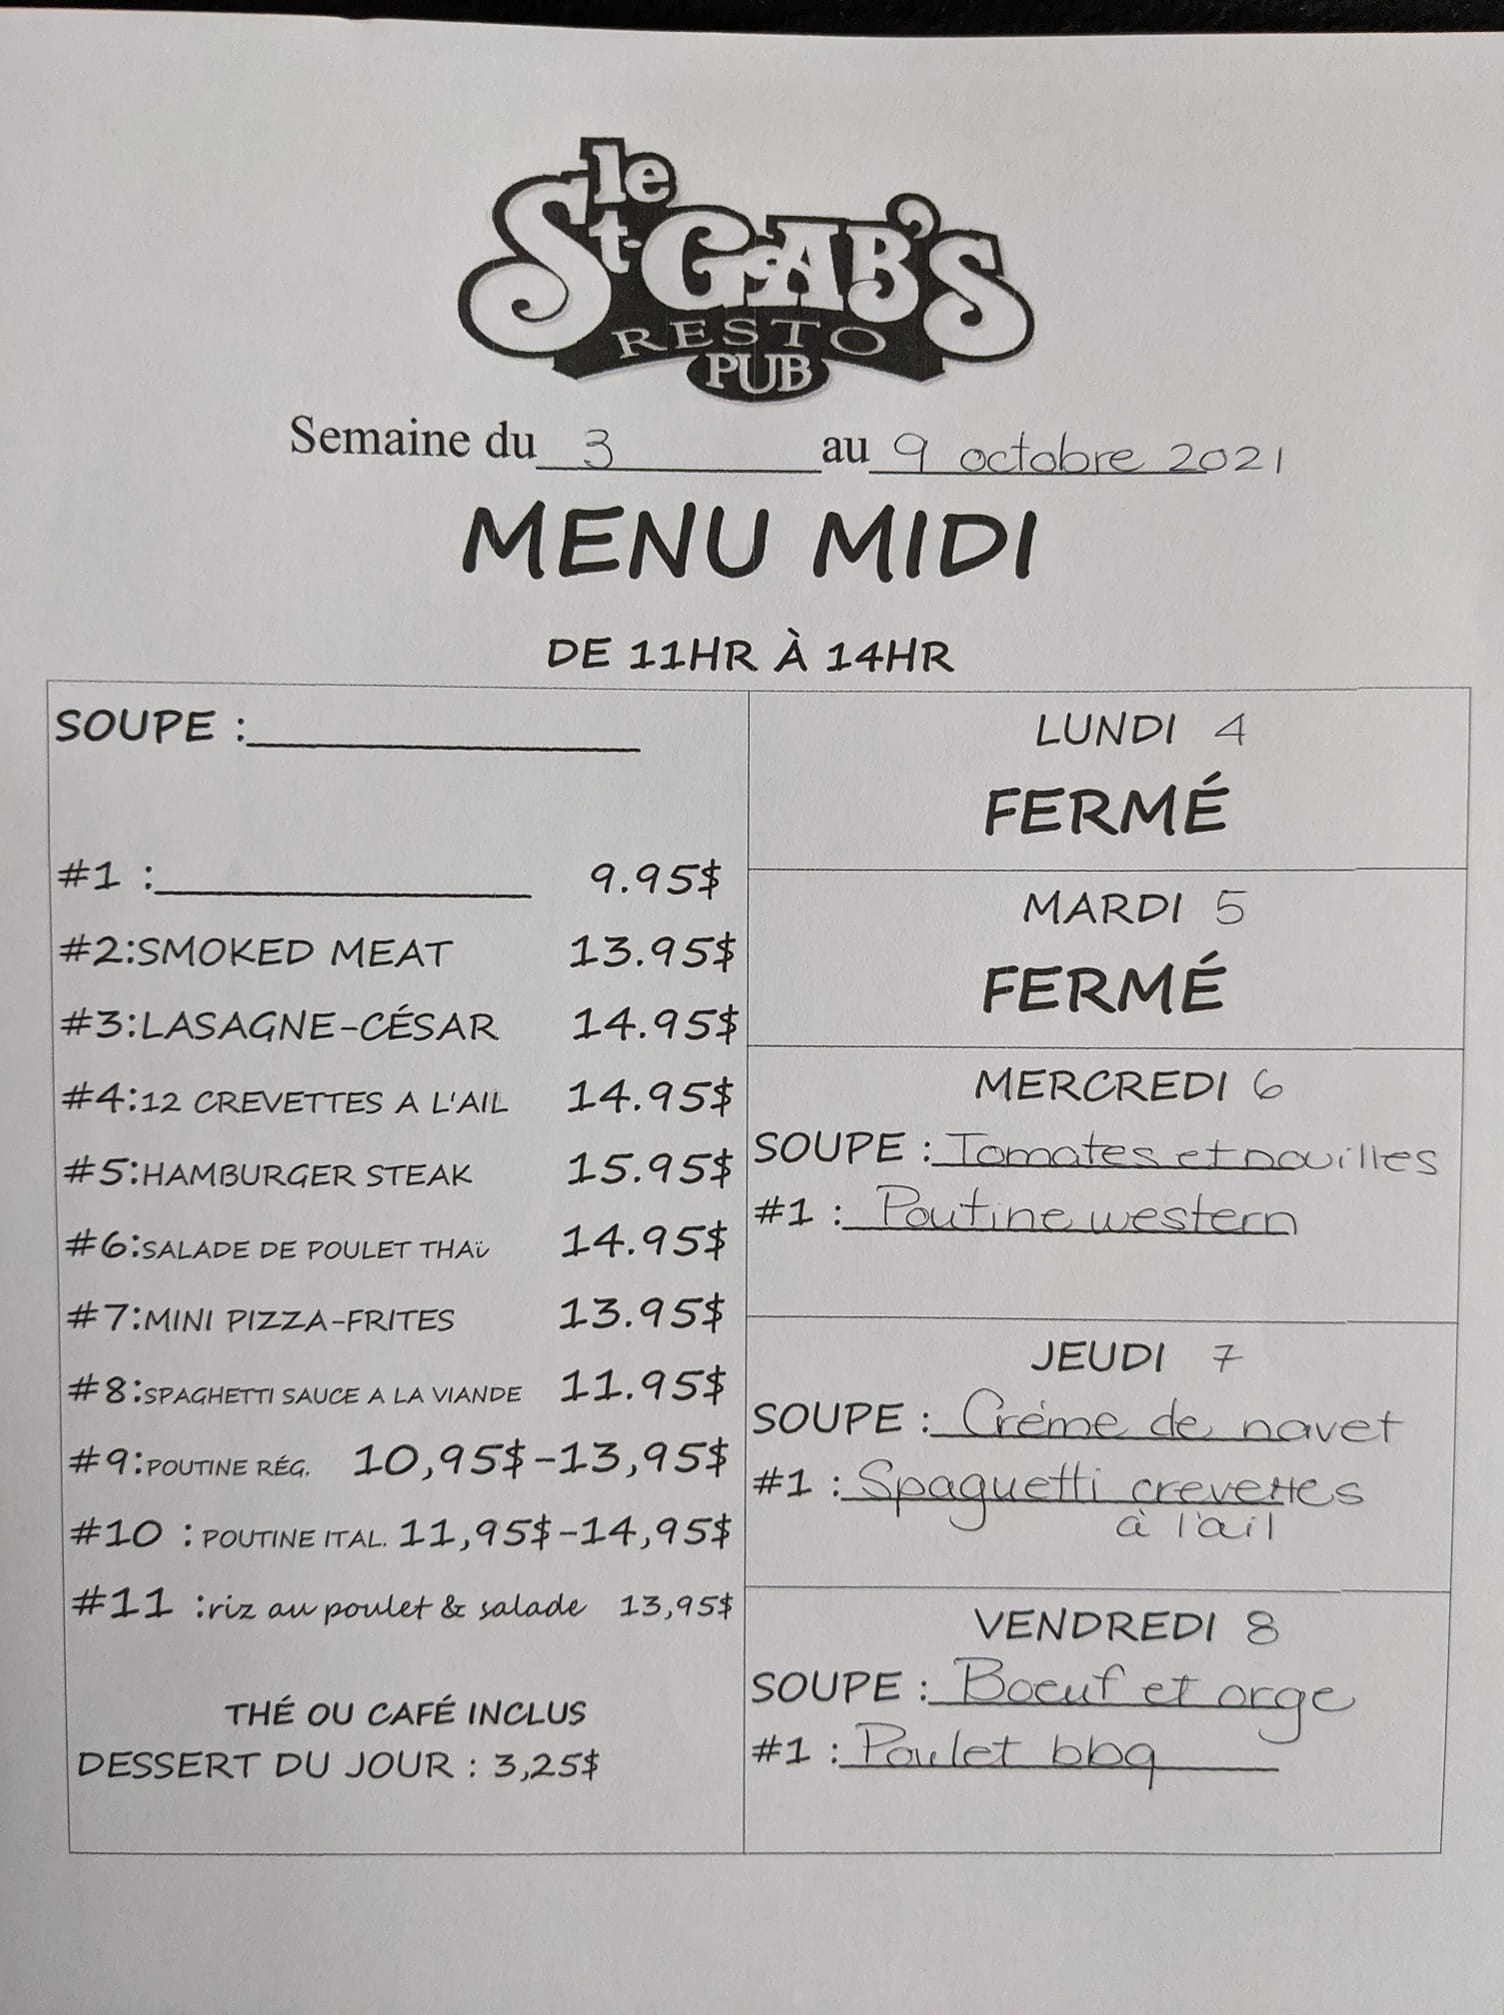 le
St-GAB'S
RESTO
PUB
Semaine du 3 au 9 octobre 2021
MENU MIDI
DE 11HR À 14HR
SOUPE :
#1 : 9.95$
#2:SMOKED MEAT 13.95$
#3:LASAGNE-CÉSAR 14.95$
#4:12 CREVETTES A L'AIL 14.95$
#5:HAMBURGER STEAK 15.95$
#6:SALADE DE POULET THAï 14.95$
#7:MINI PIZZA-FRITES 13.95$
#8:SPAGHETTI SAUCE A LA VIANDE 11.95$
#9:POUTINE RÉG. 10,95$-13,95$
#10 : POUTINE ITAL. 11,95$-14,95$
#11 :riz au poulet & salade 13,95$
THÉ OU CAFÉ INCLUS
DESSERT DU JOUR : 3,25$
LUNDI 4
FERMÉ
MARDI 5
FERMÉ
MERCREDI 6
SOUPE : Tomates et nouilles
#1 : Poutine western
JEUDI 7
SOUPE : Créme de navet
#1 : Spaguetti crevettes
à l'ail
VENDREDI 8
SOUPE : Boeuf et orge
#1 : Poulet bbq